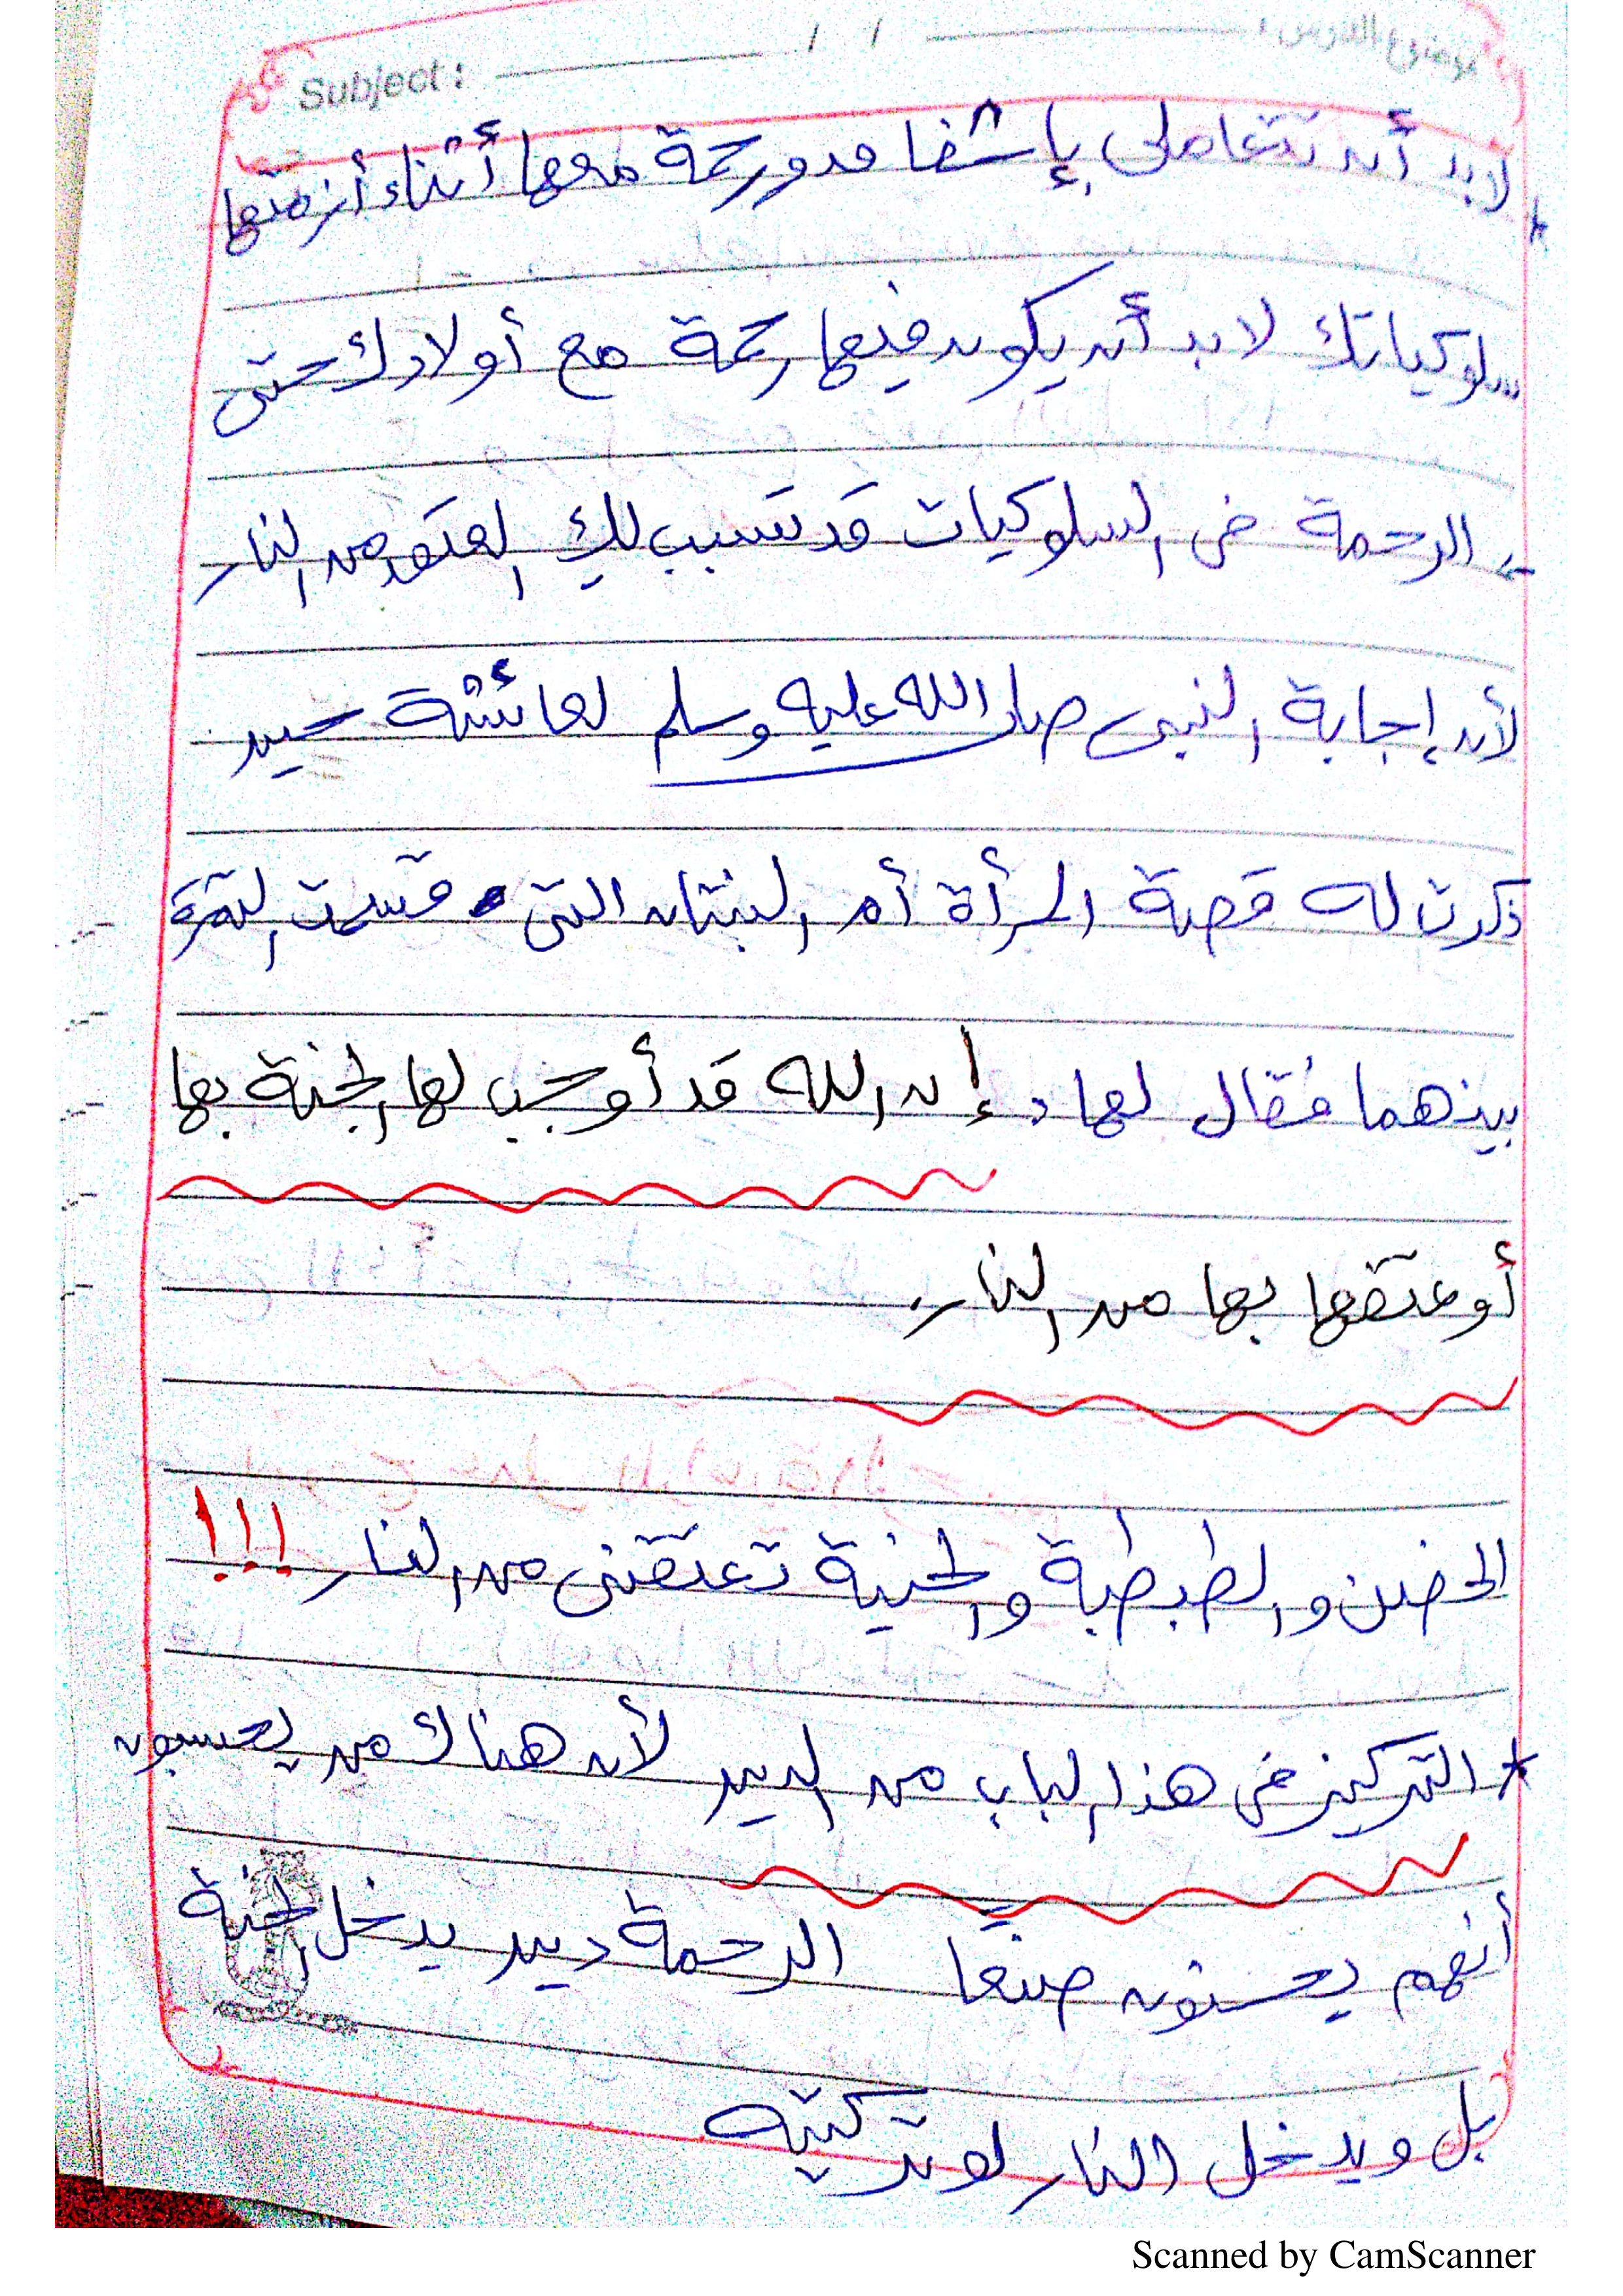 موضوع الدرس :
Subject : / /
* لابد أن تتعاملى بإشفاق ورحمة معها أثناء أزمتها
سلوكياتك لابد أن يكون فيها رحمة مع أولادك حتى
الرحمة فى السلوكيات قد تسبب لكِ العتق من النار
لأن إجابة النبى صلى الله عليه وسلم لعائشة حين
ذكرت له قصة المرأة أم البنتان التى قسمت التمرة
بينهما فقال لها : إن الله قد أوجب لها الجنة بها
أو عتقها بها من النار.
الحضن والطبطبة والحنية تعتقنى من النار !!!
* التركيز فى هذا الباب من الدين لأن هناك من يحسبون
أنهم يحسنون صنعًا الرحمة دين يدخل الجنة
بل ويدخل النار لو تركتيه
Scanned by CamScanner